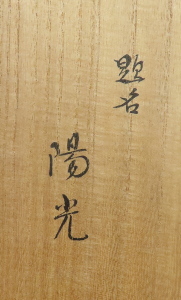 題名
陽光